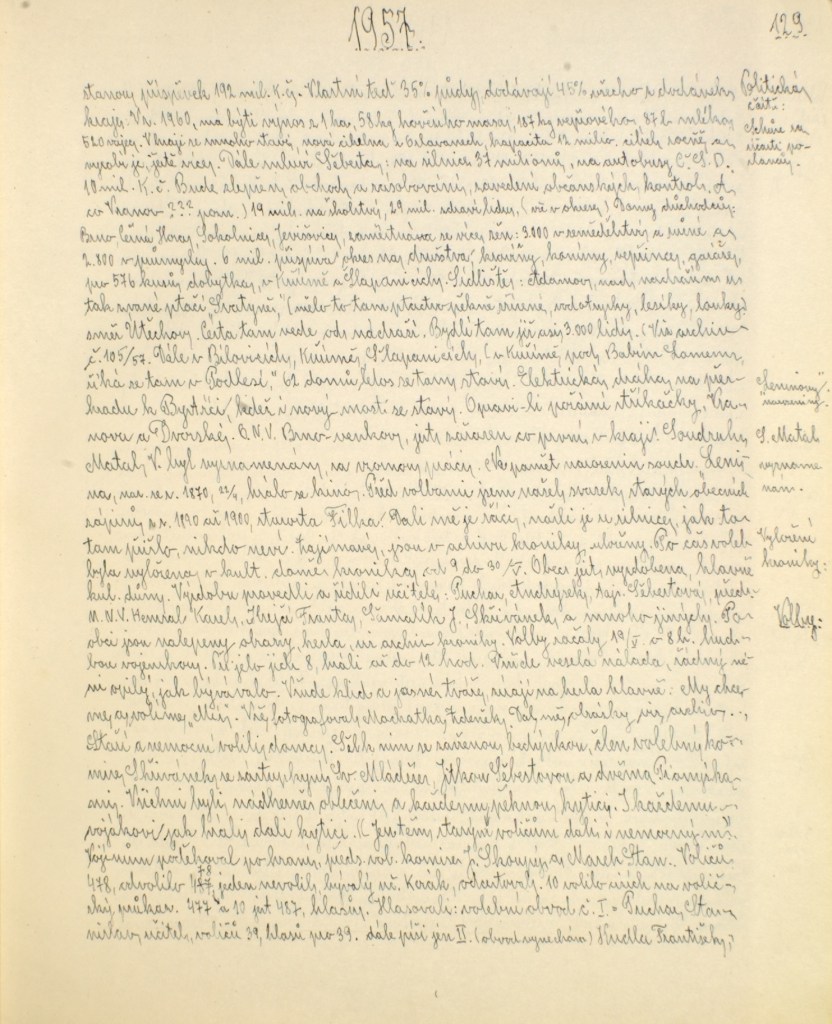 1957.
129
stanou příspěvek 192 mil. K.č. Vlastní teď 35% půdy, dodávají 45% všecho z dodávek
Politická
části:
Schůze za
účasti po-
slanců.
kraje. V r. 1960, má býti výnos z 1 ha, 58 kg hovězího masa, 187 kg vepřového, 87 l. mléka,
520 vajec. V kraji se mnoho staví, nová cihelna v Oslavanech, kapacita 12 milio. cihel ročně a
vyrobí je, ještě více. Dále mluví Šebesta: na silnice 37 milionů, na autobusy Č.S.D.
10 mil. K.č. Bude zlepšeny obchody a zásobování, zavedeni občanských kontrol. A
co Vranov ??? pozn.) 19 mil. na školství, 29 mil. zdraví lidu, (vše v okrese) Domy důchodců:
Brno Černá Hora, Sokolnice, Jevišovice, zaměstnává se více žen: 3.000 v zemědělství a
2.800 v průmyslu. 6 mil. přispívá okres na družstva, kravíny, koníny, vepřince,
po 576 kusů dobytka, v Kuřimě a Šlapanicích. Sídliště: Adamov, nad nádražím u
tak zvané ptačí Svatyně, (mělo to tam ptactvo pěkně, lesíky, louky)
směr Útěchov. Cesta tam vede od nádraží. Bydlí tam již asi 3.000 lidí. (Viz archiv
č. 105/57. Dále v Bílovicích, Kuřimě, Šlapanicích, (v Kuřimě pod Babím Lomem,
říká se tam v Podlesí," 62 domů letos se tam staví. Elektrická dráha na pře-
hradu k Bystrci, kde i nový most se staví. Opraví-li požární stříkačky, Vra-
nova a Dvorské. O.N.V. Brno-venkov, jest zařazen co první v kraji. Soudruh
Matal V. byl vyznamenán, za vzornou práci. Na paměť narozenin soudr. Leni-
na, nar. se r. 1870, 22/4, hrálo se kino. Před volbami jsem našel svazek starých obecních
zápisů z r. 1890 až 1900, starosta Filka. Dali mě je, našli je u silnice, jak to
tam přišlo, nikdo neví. Zajímavé, jsou v archivu kroniky, uloženy. Po čas voleb
byla vyložena v kult. domě kronika od 9 do 30/V. Obec jest vyzdobena, hlavně
kul. dům. Výzdobu provedli a řídili učitelé: Puchar, Šebestová, předs.
M.N.V. Hemzal Karel, Krejčí Franta, J. Skřivánek, a mnoho jiných. Po
obci jsou nalepeny obrazy, hesla, viz archiv kroniky. Volby začaly 19/V. v 8 h. hud-
bou vojenskou. Jelo jich 8, hráli až do 12 hod. Všude veselá nálada, žádný ne-
ní opilý, jak bývávalo. Všude klid a jasné tváře, mají na hesla hlavně: My chce-
me a volíme "Mír". Vše fotografoval Machatka Zdeněk. Dal mě obrázky, viz archiv...
Staří a nemocní volili doma. Šel k nim se zařízenou bedýnkou, člen volebný ko-
mise, Skřivánek, se zástupkyní Sv. Mládeže, Jitkou Šebestovou a dvěma Pionýrka-
mi. Všichni byli, nádherně oblečeni, a každému pěknou kytici. I každému
vojákovi, jak hráli, dali kytici. K jen těm starým voličům dali i nemocným.
Vojínům poděkoval po hraní, předs. vol. komise J. Skoupý, a Marek Stan. Voličů
478, odvolilo 477 jeden nevolil, bývalý uč. Korák, odcestoval. 10 volilo jich na volič-
ský průkaz. 477 a 10 jest 487, hlasů. Hlasovali: volební obvod č. I. = Puchar, Sta-
nislav, učitel, voličů 39, hlasů pro 39. dále píši jen II. (obvod vynechám) Kudla František,
Leninovy
narozeniny.
S. Matal
vyzname-
nán.
Vyložení
kroniky:
Volby: